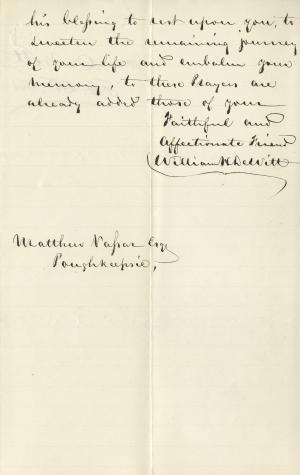 his blessing to rest upon you, to
sweeten the remaining journey
of your life and embalm your
memory, to these Prayers are
already added those of your
Faithful and
Affectionate Friend
William H. DeWitt
Matthew Vassar Esq
Poughkeepsie,